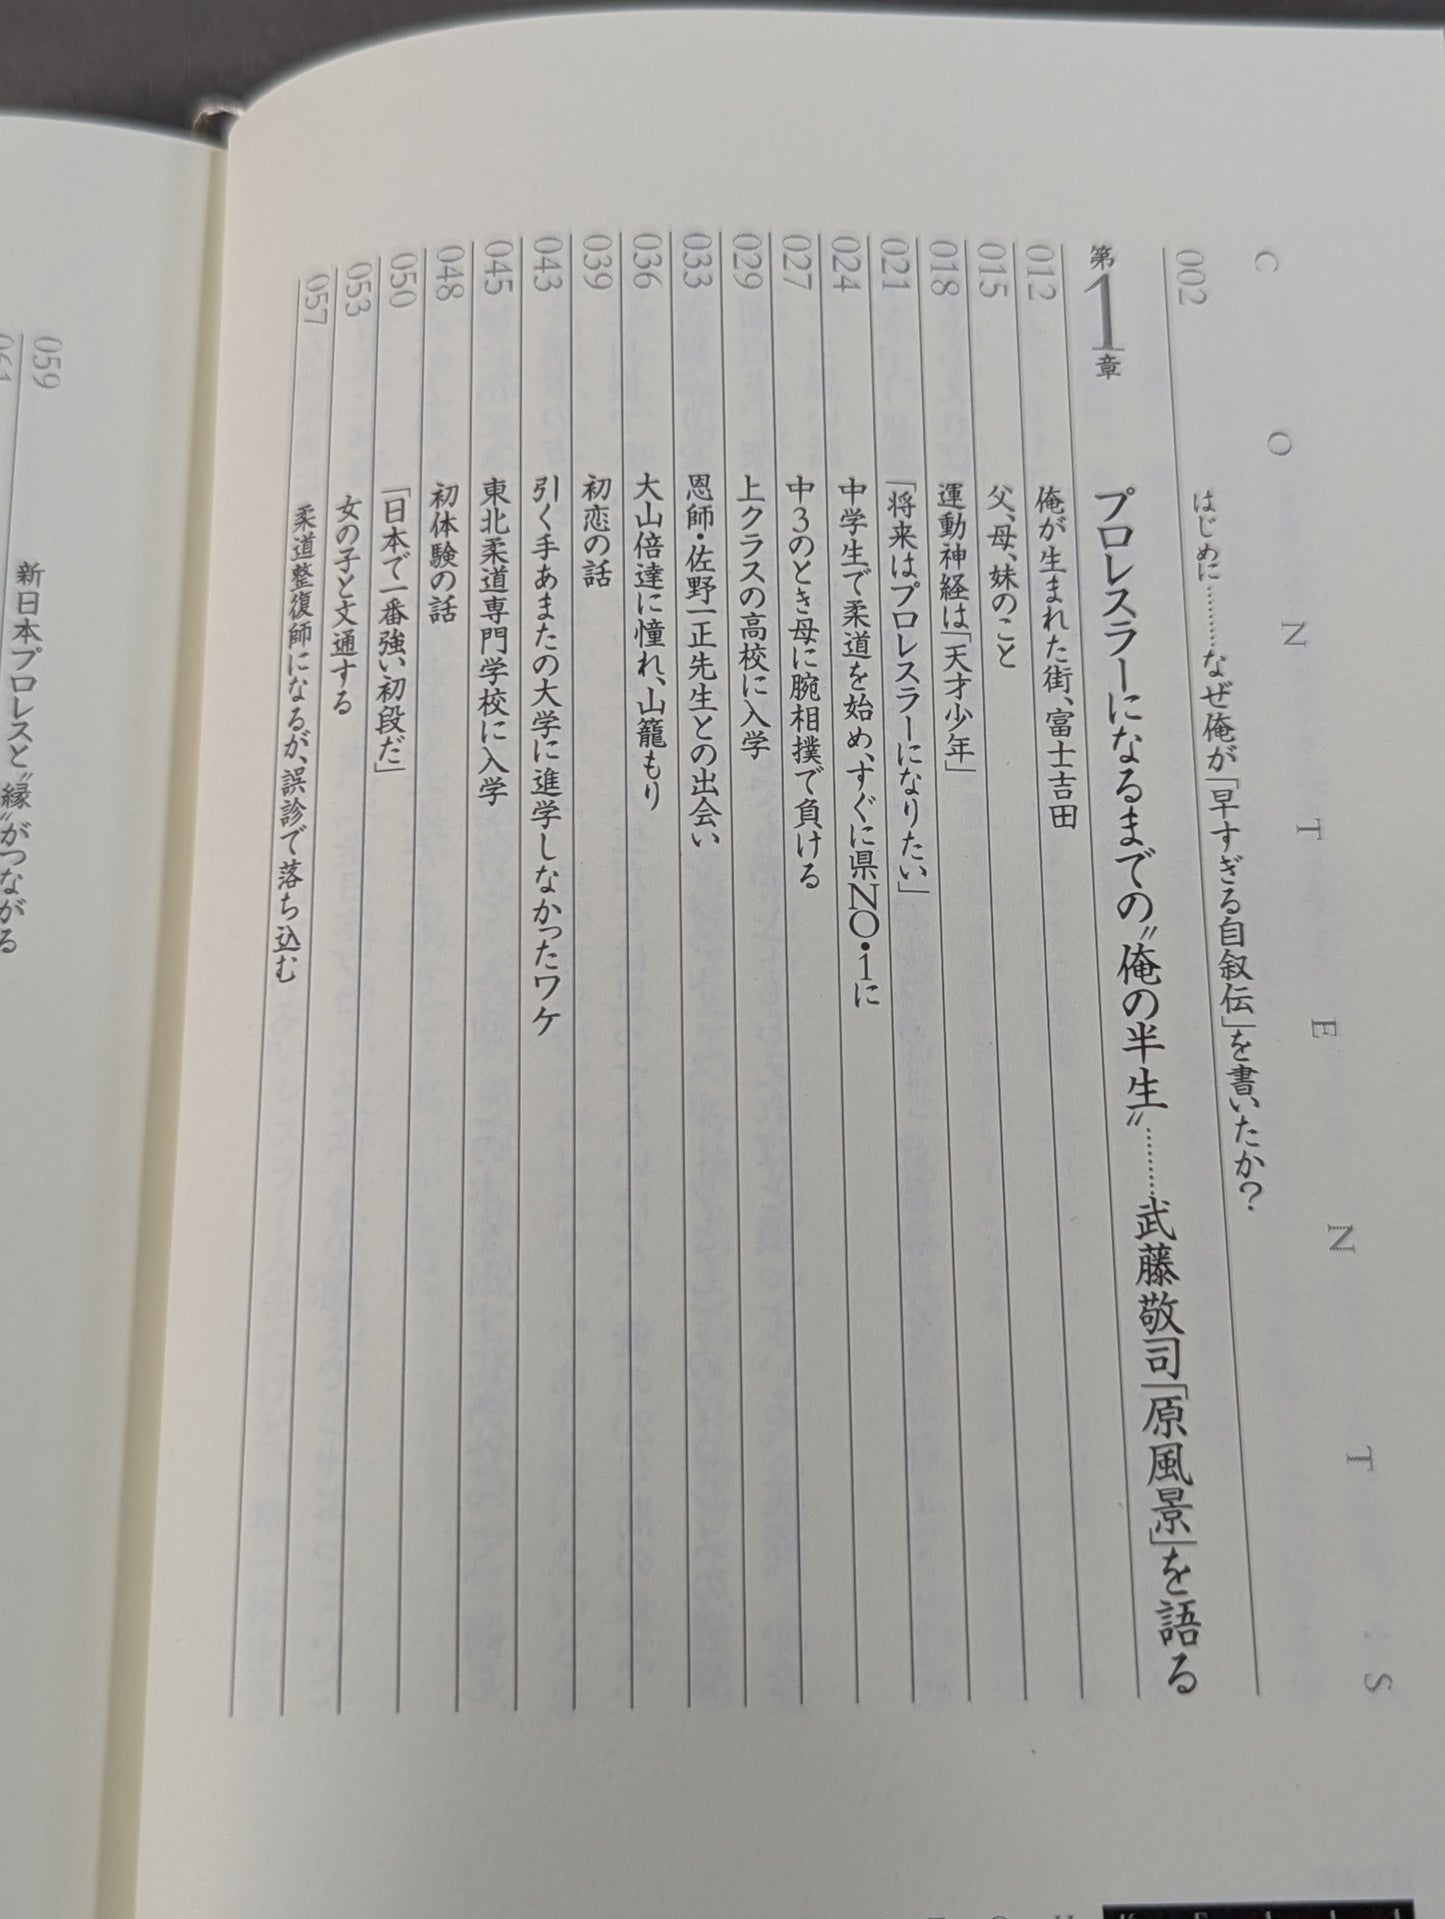 CONTENTS
002 はじめに………なぜ俺が「早すぎる自叙伝」を書いたか？
第1章 プロレスラーになるまでの〝俺の半生〟………武藤敬司「原風景」を語る
012 俺が生まれた街、富士吉田
015 父、母、妹のこと
018 運動神経は「天才少年」
021 「将来はプロレスラーになりたい」
024 中学生で柔道を始め、すぐに県NO・1に
027 中3のとき母に腕相撲で負ける
029 上クラスの高校に入学
033 恩師・佐野一正先生との出会い
036 大山倍達に憧れ、山籠もり
039 初恋の話
043 引く手あまたの大学に進学しなかったワケ
045 東北柔道専門学校に入学
048 初体験の話
050 「日本で一番強い初段だ」
053 女の子と文通する
057 柔道整復師になるが、誤診で落ち込む
059 新日本プロレスと〝縁〟がつながる
061